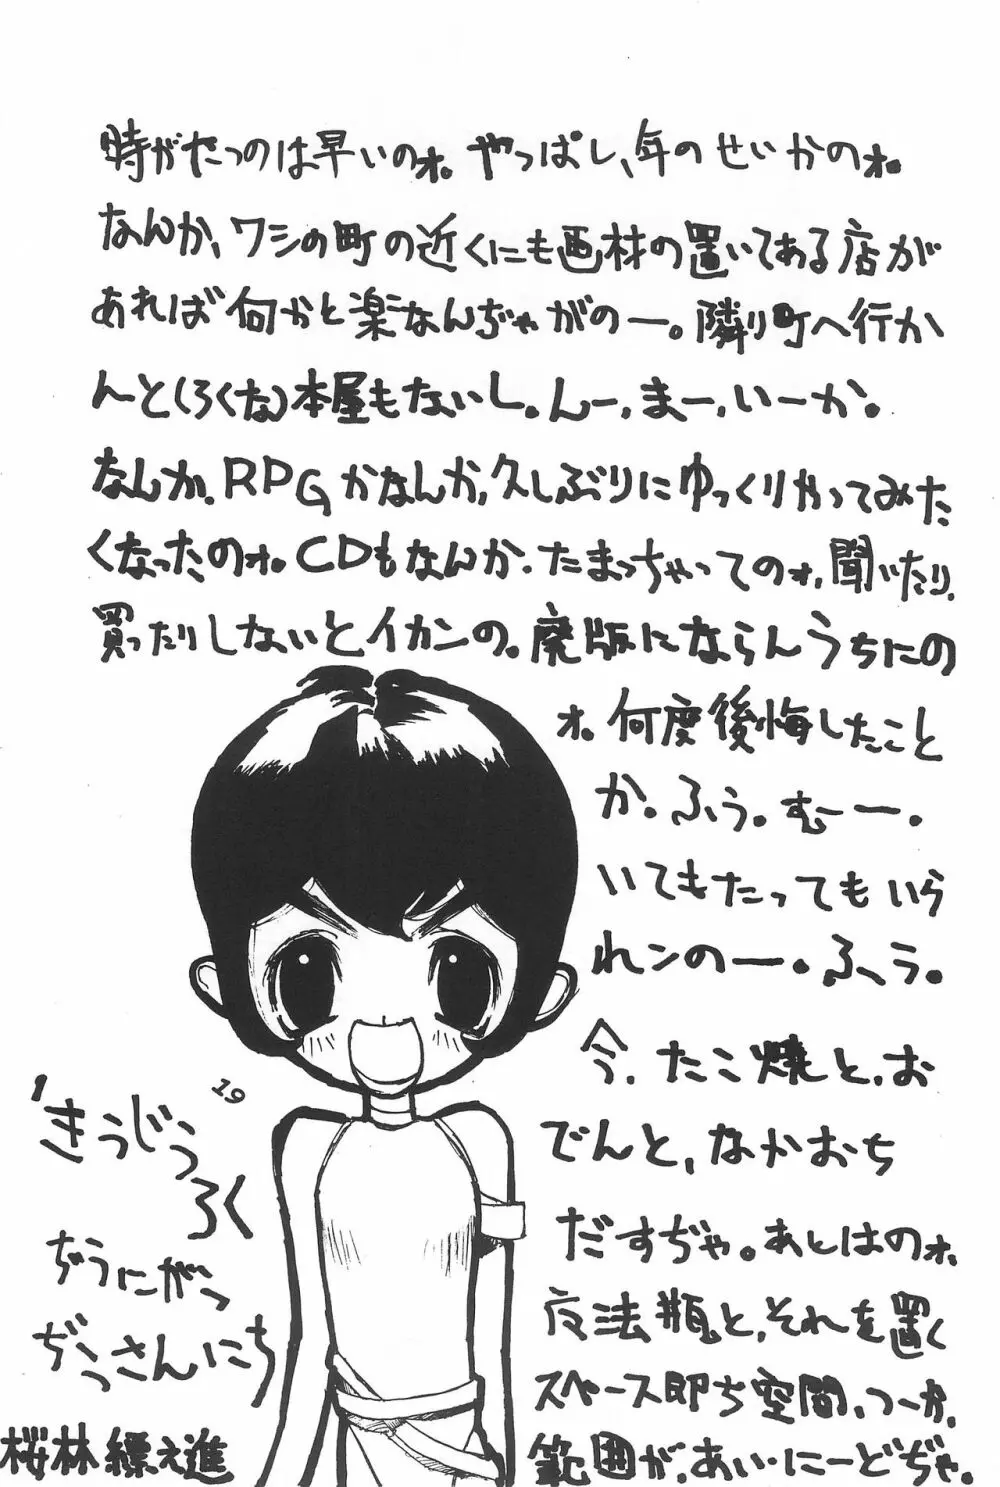 時がたつのは早いのォ。やっぱし、年のせいかのォ。
なんか、ワシの町の近くにも画材の置いてある店が
あれば何かと楽なんぢゃがのー。隣り町へ行か
んと(ろくな)本屋もないし。んー、まー、いーか。
なんか、RPGかなんか、久しぶりにゆっくりやってみた
くなったのォ。CDもなんか、たまっちゃってのォ、聞いたり、
買ったりしないとイカンの。廃版にならんうちにの
ォ。何度後悔したこと
か。ふぅ。むーー。
いてもたってもいら
れンのー。ふぅ。
今、たこ焼と、お
でんと、なかおち
だすぢゃ。あとはのォ、
魔法瓶と、それを置く
スペース即ち空間、つーか、
範囲が、あい・にーどぢゃ。
19
'きうじうろく
ぢうにがつ
ぢうさんにち
桜林 進